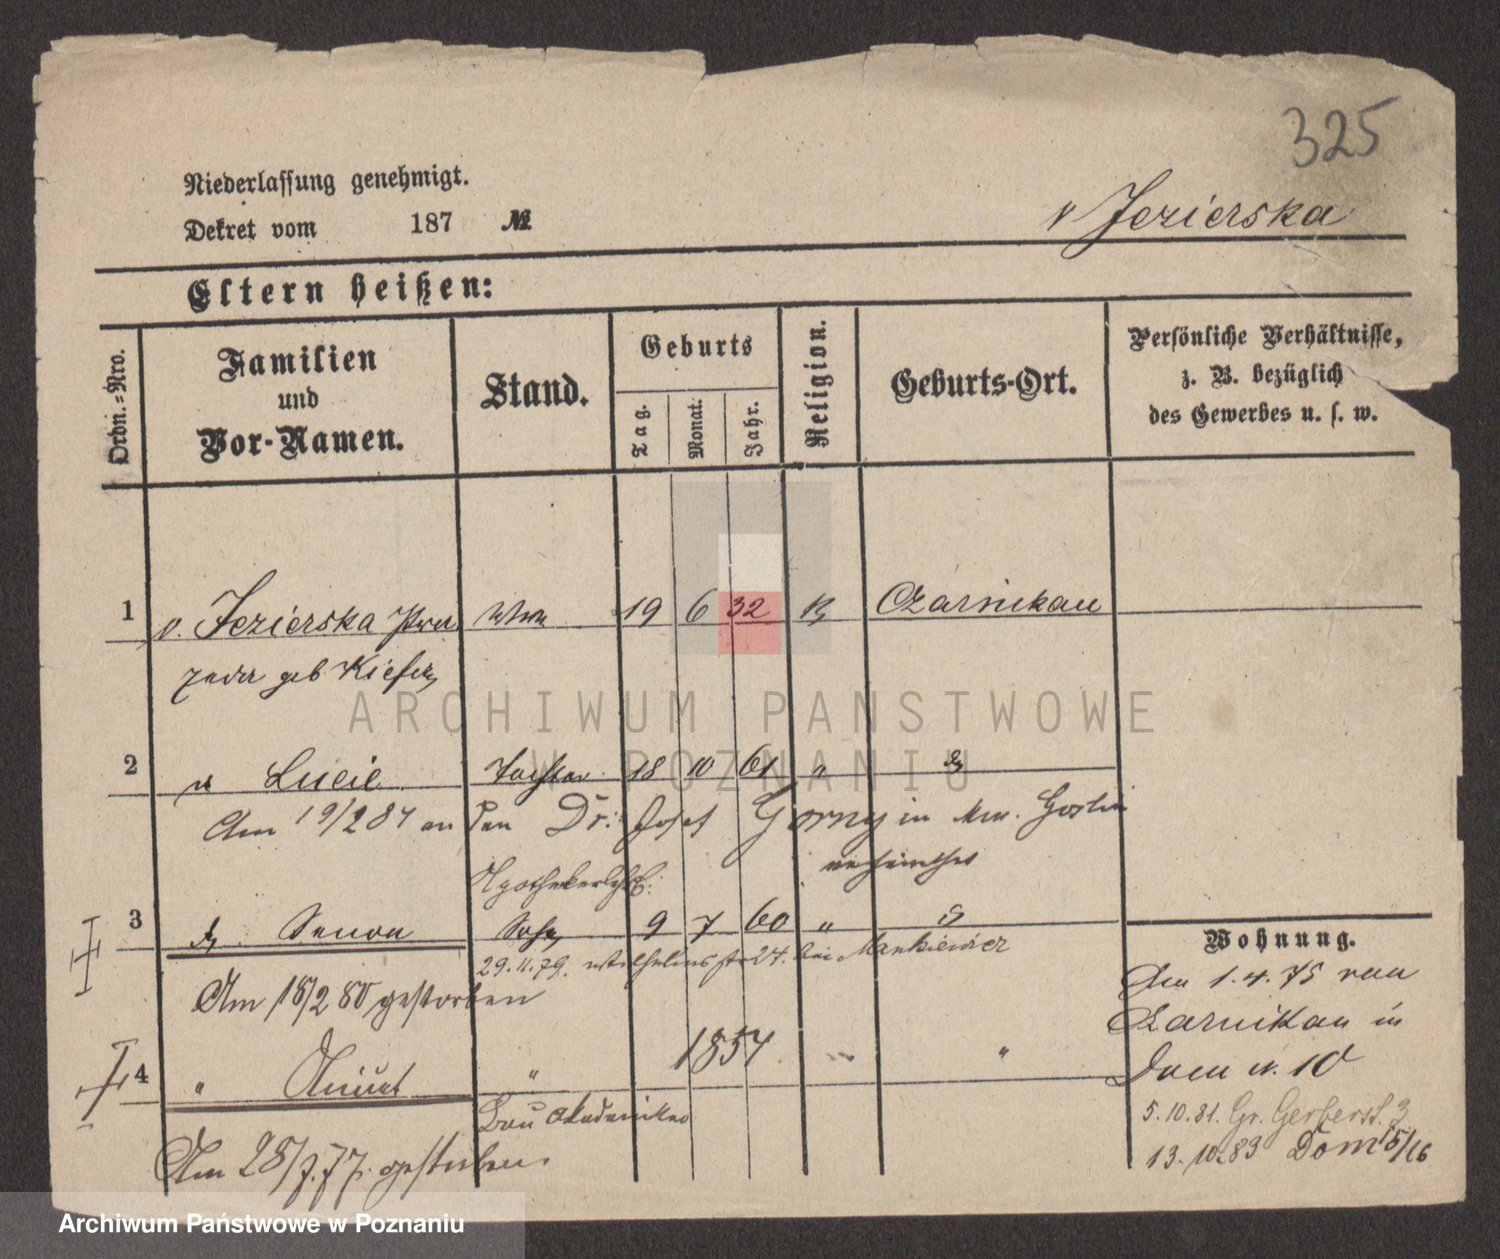 325
Niederlassung genehmigt.
Dekret vom 187 №
v Jezierska
Eltern heißen:
Ordn.=Nro.
Familien
und
Vor-Namen.
Stand.
Geburts
Tag.
Monat.
Jahr.
Religion.
Geburts-Ort.
Persönliche Verhältnisse,
z. B. bezüglich
des Gewerbes u. s. w.
1 v. Jezierska 19 6 32 Czarnikau
geb Kiefer
2 Lucie Tochter 18 10 61 "
Am 19/2 84 an den Dr. Josef Gorny in Goslin
verheirathet
3 Zenon Sohn 9 7 60 "
29.11.79. Wilhelmsstr 24. bei Mankiewicz
Am 18/2 80 gestorben
4 " " 1857 "
Bau Akademiker
Am 28/7.77. gestorben.
Wohnung.
Am 1.4.75 von
Czarnikau in
Dom N. 10
5.10.81. Gr. Gerberst. 3
13.10.83 Dom 15/16
ARCHIWUM PAŃSTWOWE
W POZNANIU
Archiwum Państwowe w Poznaniu